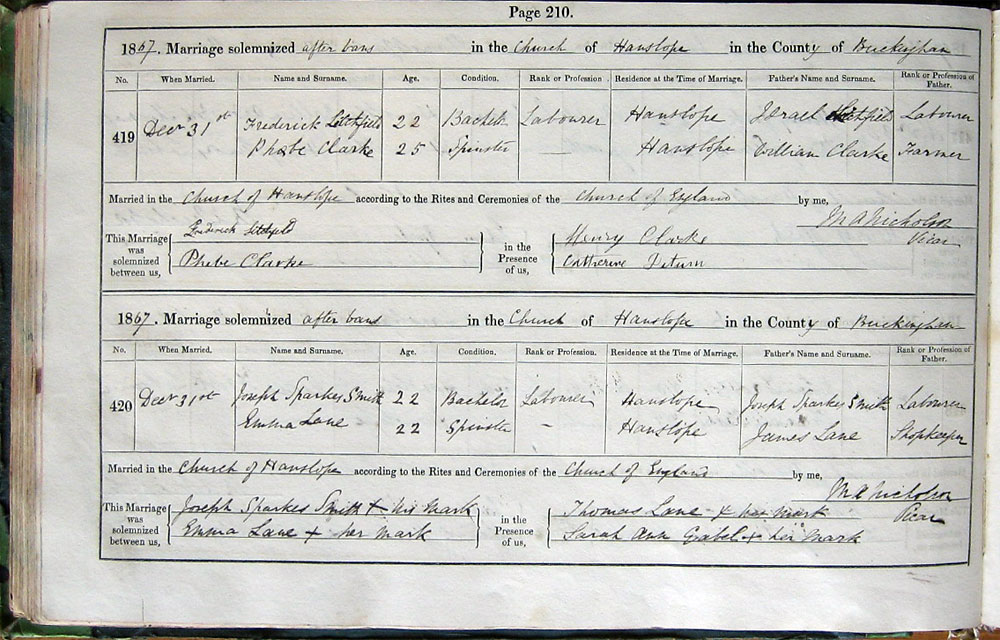 Page 210.
1867. Marriage solemnized after bans in the Church of Hanslope in the County of Buckingham
No. When Married. Name and Surname. Age. Condition. Rank or Profession. Residence at the Time of Marriage. Father's Name and Surname. Rank or Profession of Father.
419 Decr 31st Frederick Litchfield 22 Bachelr Labourer Hanslope Israel Litchfield Labourer
Phebe Clarke 25 Spinster — Hanslope William Clarke Farmer
Married in the Church of Hanslope according to the Rites and Ceremonies of the Church of England by me,
M A Nicholson
Vicar
This Marriage was solemnized between us, Frederick Litchfield in the Presence of us, Henry Clarke
Phebe Clarke Catherine
1867. Marriage solemnized after bans in the Church of Hanslope in the County of Buckingham
No. When Married. Name and Surname. Age. Condition. Rank or Profession. Residence at the Time of Marriage. Father's Name and Surname. Rank or Profession of Father.
420 Decr 31st Joseph Sparkes Smith 22 Bachelor Labourer Hanslope Joseph Sparkes Smith Labourer
Emma Lane 22 Spinster - Hanslope James Lane Shopkeeper
Married in the Church of Hanslope according to the Rites and Ceremonies of the Church of England by me,
M A Nicholson
Vicar
This Marriage was solemnized between us, Joseph Sparkes Smith + his mark in the Presence of us, Thomas Lane + her mark
Emma Lane + her mark Sarah Ann + her mark